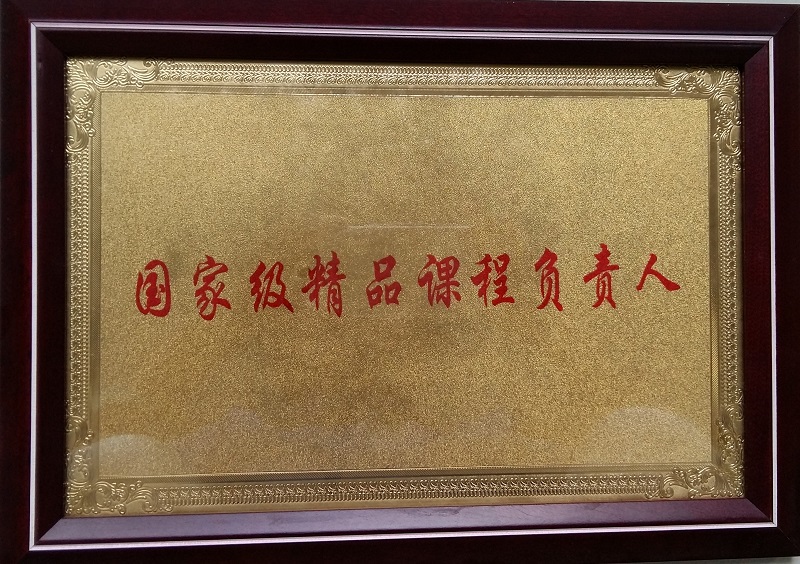 国家级精品课程负责人